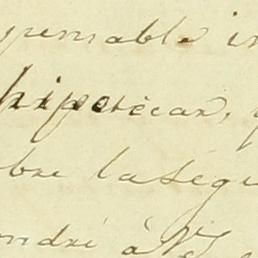 pensable in
hipotécar,
bre la segu
ondré à V.